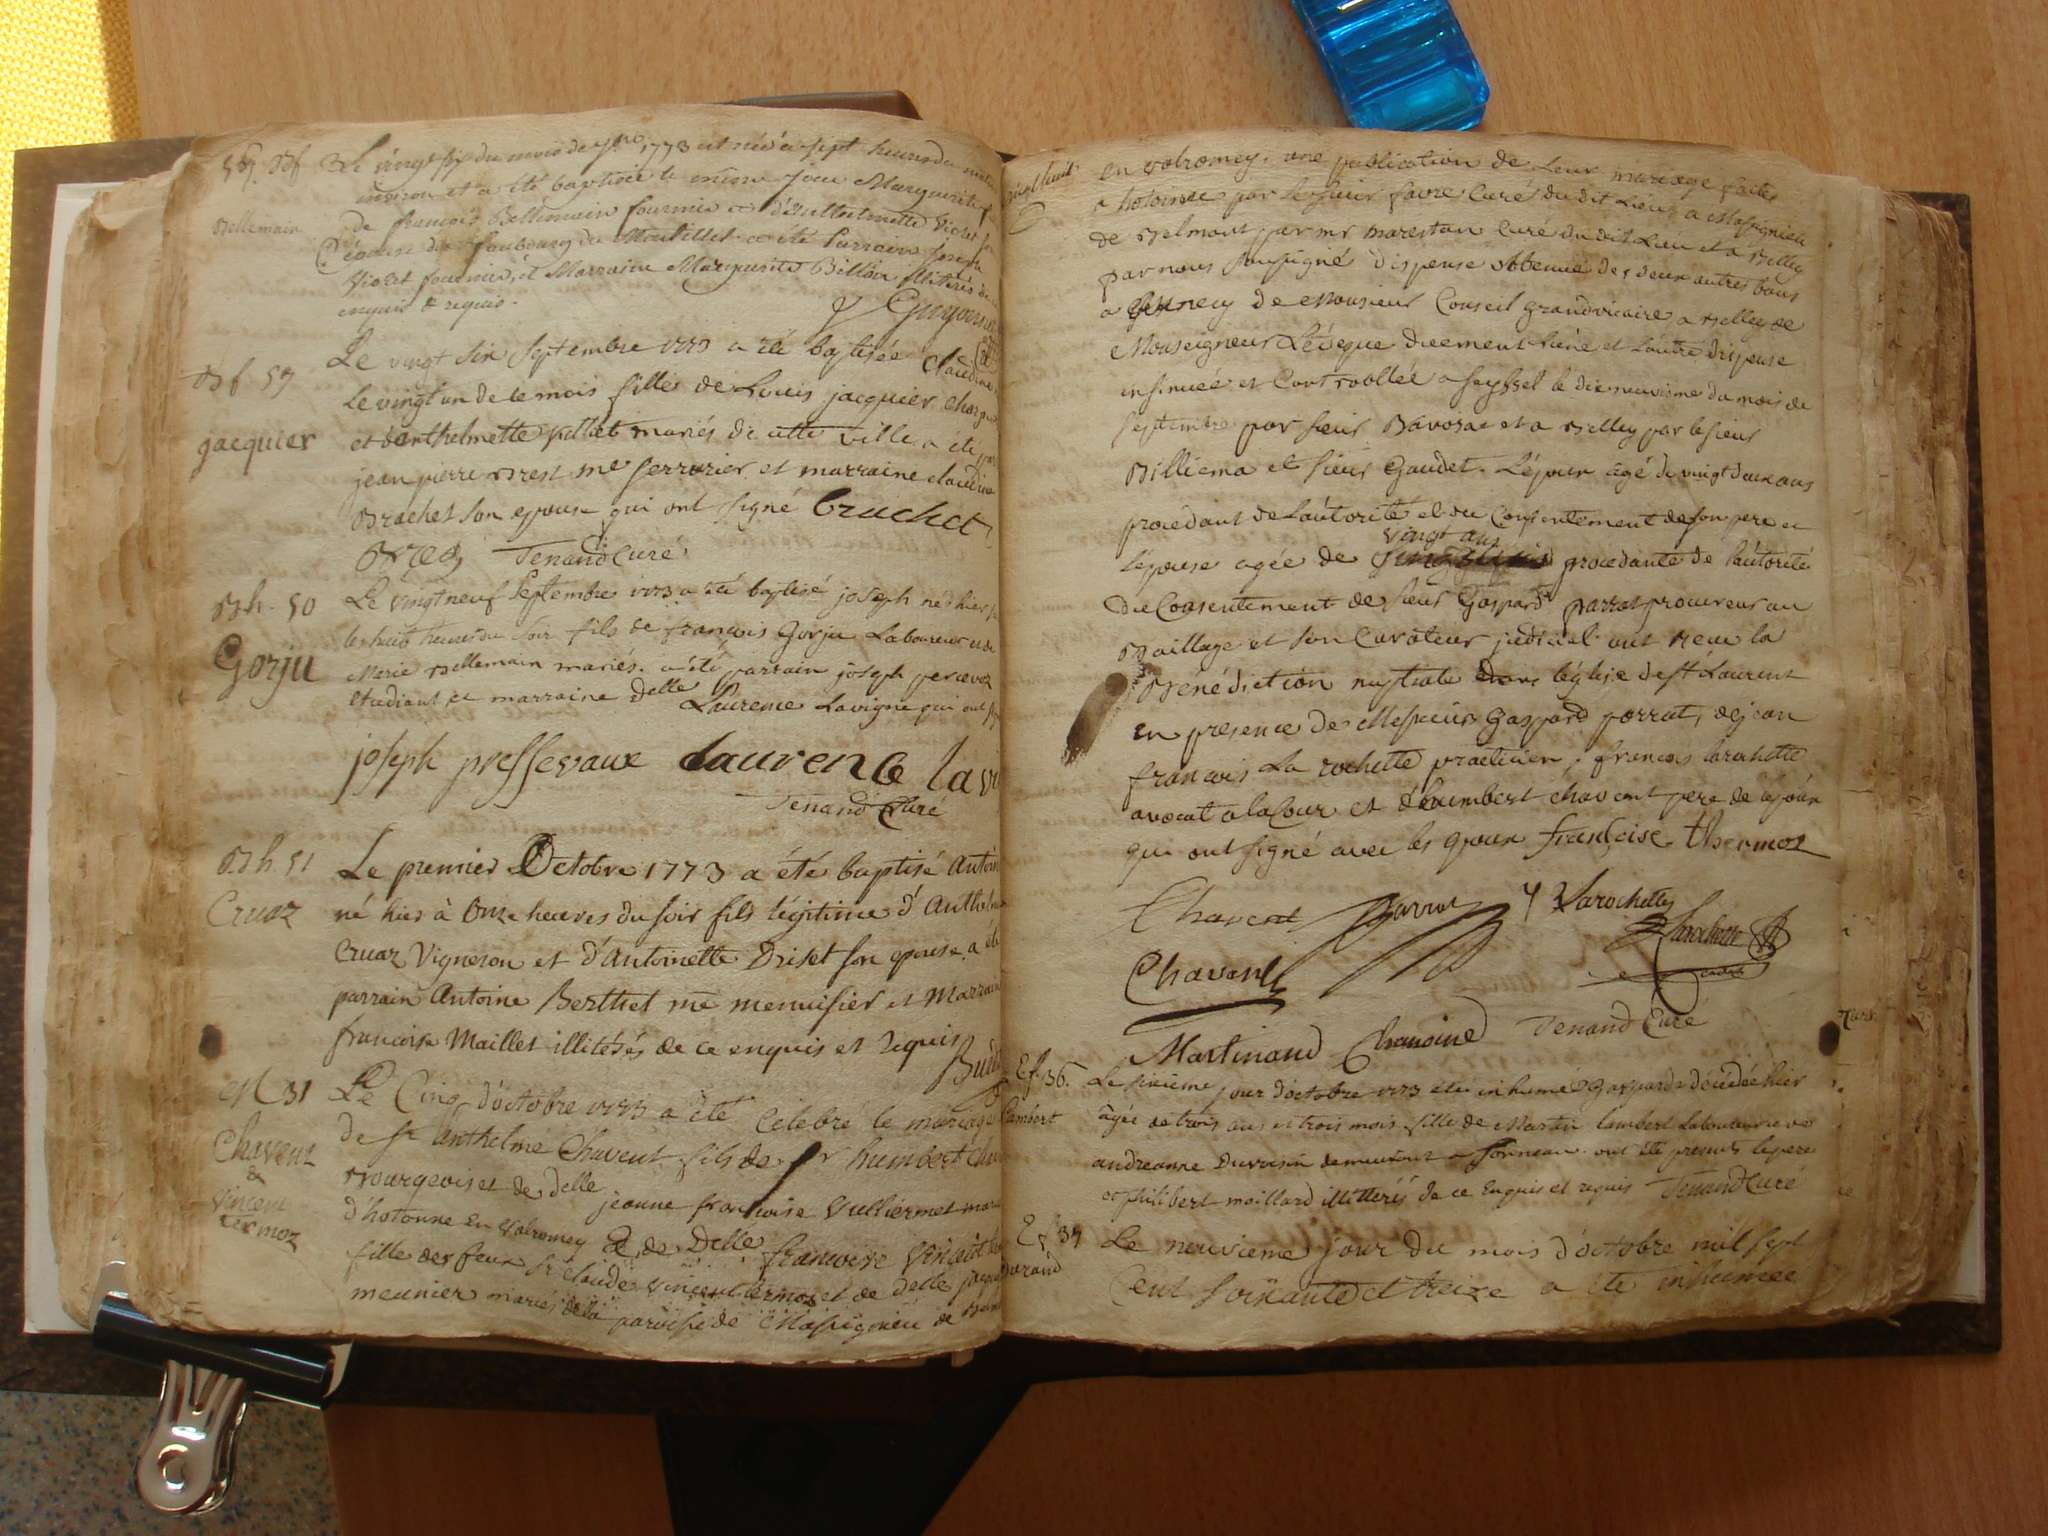 Bf
Bellemain
Le vingt six du mois de 1773 est née à sept heures du matin
environ et a été baptisée le même jour Marguerite
de françois Bellemain fournier et Violet
épouse du fauxbourg du a été Parrain Joseph
Violet fournier, et Marraine Marguerite Billion illitérés de
enquis & requis.
Bf. 59
jacquier
Le vingt six septembre 1773 a été baptisée Claudine
le vingt un de ce mois fille de Louis jacquier
et d'anthelmette mariés de cette ville a été
jean pierre Brest me serrurier et marraine claudine
Brachet son epouse qui ont signé Brachet
Tenand Curé
Bh. 50
Gorju
Le vingt neuf Septembre 1773 a été baptisé joseph né hier
les huit heures du soir fils de françois Gorju Laboureur et de
Marie Bellemain mariés. a été parrain joseph
etudiant et marraine Delle Laurence Lavigne qui ont
joseph pressevaux Laurence lavi
Tenand Curé
Bh 51
Cruaz
Le premier Octobre 1773 a été baptisé Antoin
né hier à Onze heures du soir fils légitime d'
Cruaz Vigneron et d'Antoinette Driset son epouse. a été
parrain Antoine Berthet me menuisier et Marraine
francoise Maillet illitérés de ce enquis et requis
M 31
Chavent
&
Vincent
termoz
Le Cinq d'octobre 1773 a été Célébré le mariage
de sr anthelme Chavent fils de sr humbert
Bourgeois et de Delle jeanne françoise Vulliermet
d'hotonne en valromey et de Delle francoise Vincent
fille des feux sr claude Vincent termoz et de Delle
meunier mariés de la paroisse de Massignieu de
en valromey. une publication de leur mariage faite
a hotonne par le sieur favre Curé du dit Lieu, a Massignieu
de Belmont par mr marestan Curé du dit Lieu et a Belley
par nous soussigné dispense obtenue des deux autres bans
a de Monsieur Conseil grand vicaire a Belley de
Monseigneur L'évêque duement et L'autre dispense
insinuée et Controollée a Seyssel le dix neuvième du mois de
Septembre par sieur et a Belley par le sieur
Billiema et sieur Gaudet. L'époux agé de vingt deux ans
procedant de L'autorité et du Consentement de son pere et
vingt ans
l'épouse agée de procedante de l'autorité
du Consentement de sieur Gaspard parrat procureur au
Baillage et son Curateur judiciel ont recu la
Bénédiction nuptiale dans l'église de st Laurent
en presence de Messieurs Gaspard parrat, de jean
françois La rochette practicien, françois larochette
avocat a la Cour et d'humbert chavent pere de lepoux
qui ont signé avec les epoux françoise thermoz
Chavent parrat Larochette
Chavent
Martinand Chanoine Tenand Curé
Ef. 36.
Lambert
Le sixieme jour d'octobre 1773 a été inhumé Gasparde décédée hier
âgée de trois ans et trois mois fille de Martin lambert laboureur et de
andreanne demeurant a . ont été presents le pere
et philibert maillard illittérés de ce Enquis et requis Tenand Curé
Ef 37
Le neuvieme jour du mois d'octobre mil sept
Cent soixante et treize a été inhumée